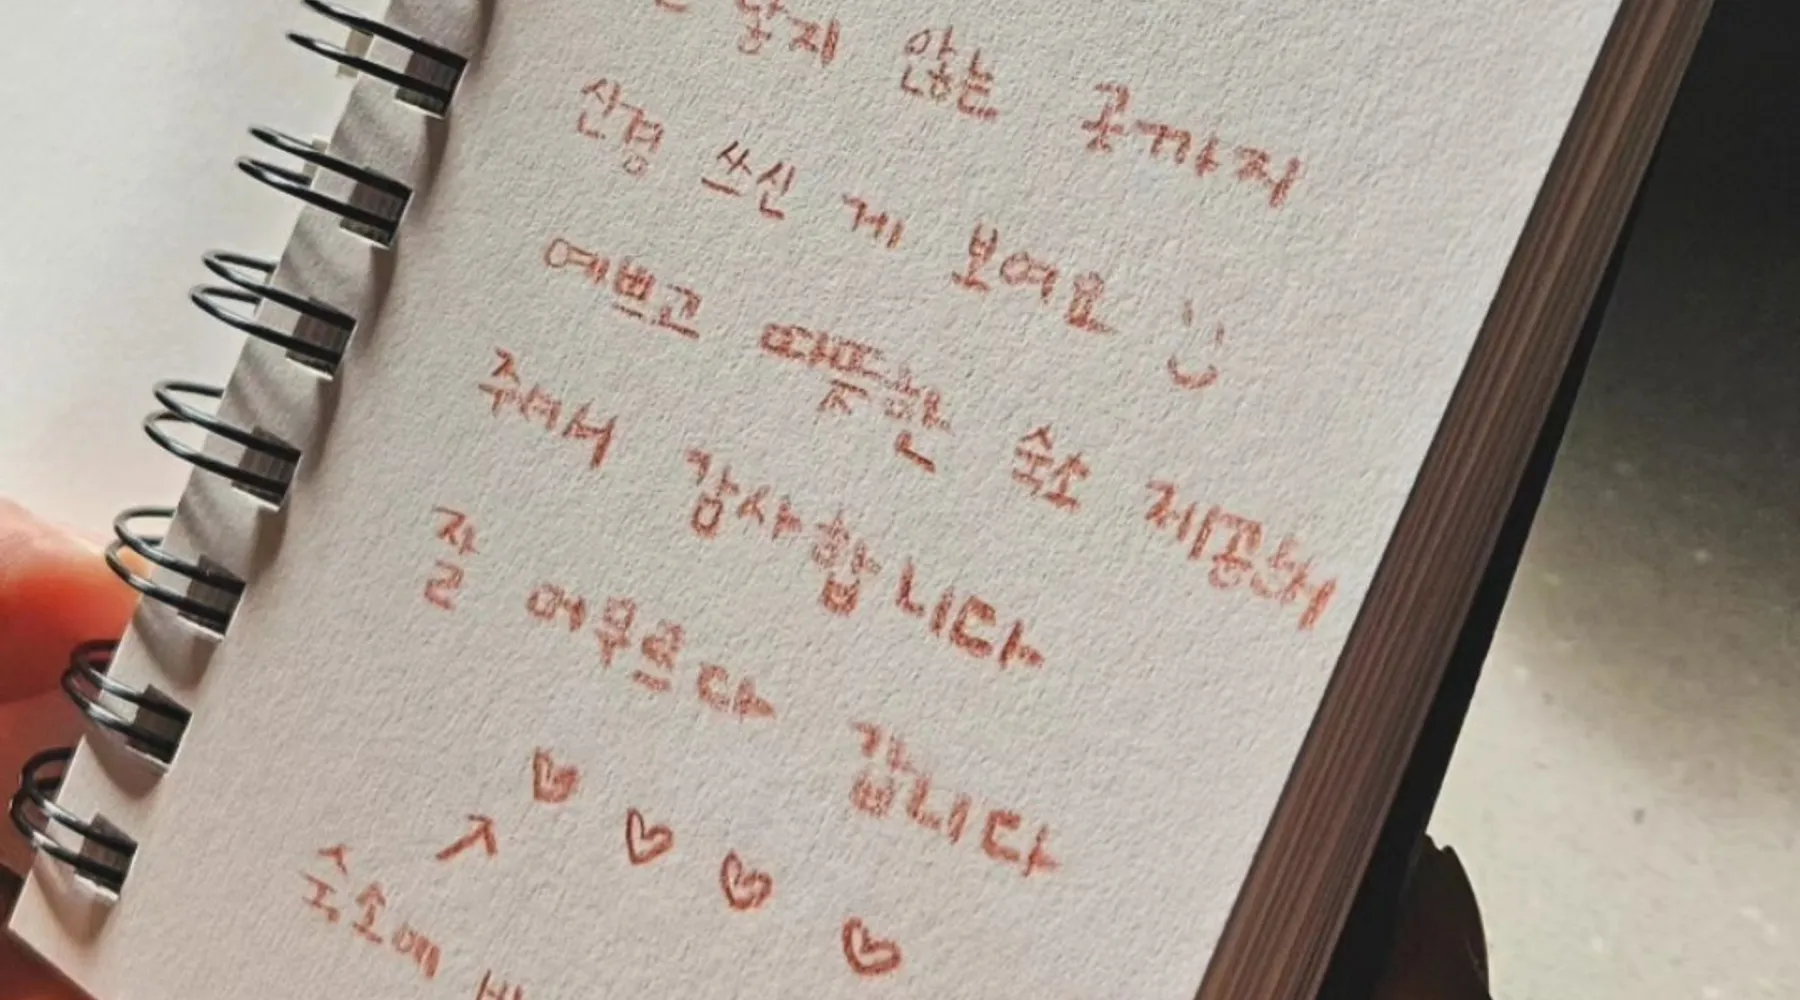 닿지 않는 곳까지
신경 쓰신 게 보여요
예쁘고 따뜻한 숙소 제공해
주셔서 감사합니다
잘 머무르다 갑니다
숙소에